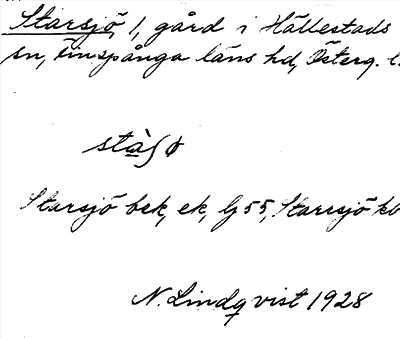 Starsjö 1, gård i Hällestads
sn, Finspånga läns hd, Österg. l.
stàʃø
Starsjö bek, ek, Lj 55, Starrsjö kb
N. Lindqvist 1928